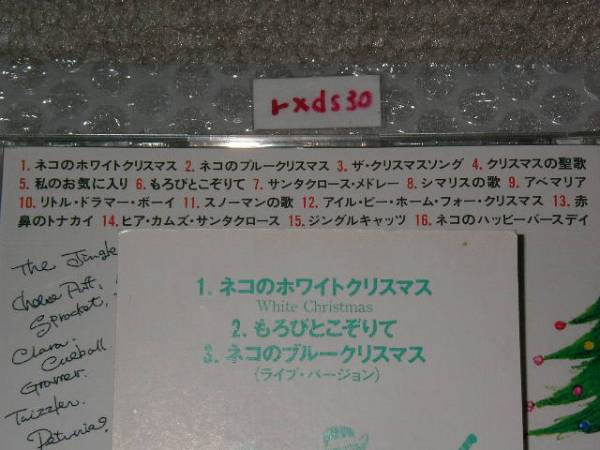 rxds30
1. ネコのホワイトクリスマス 2. ネコのブルークリスマス 3. ザ・クリスマスソング 4. クリスマスの聖歌
5. 私のお気に入り 6. もろびとこぞりて 7. サンタクロース・メドレー 8. シマリスの歌 9. アベマリア
10. リトル・ドラマー・ボーイ 11. スノーマンの歌 12. アイル・ビー・ホーム・フォー・クリスマス 13. 赤
鼻のトナカイ 14. ヒア・カムズ・サンタクロース 15. ジングルキャッツ 16. ネコのハッピーバースデイ
The Jingle
Cheese Puff,
Sprocket,
Clara.
Cueball
Graymer.
Twizzler.
Petunia.
1. ネコのホワイトクリスマス
White Christmas
2. もろびとこぞりて
3. ネコのブルークリスマス
(ライブ・バージョン)